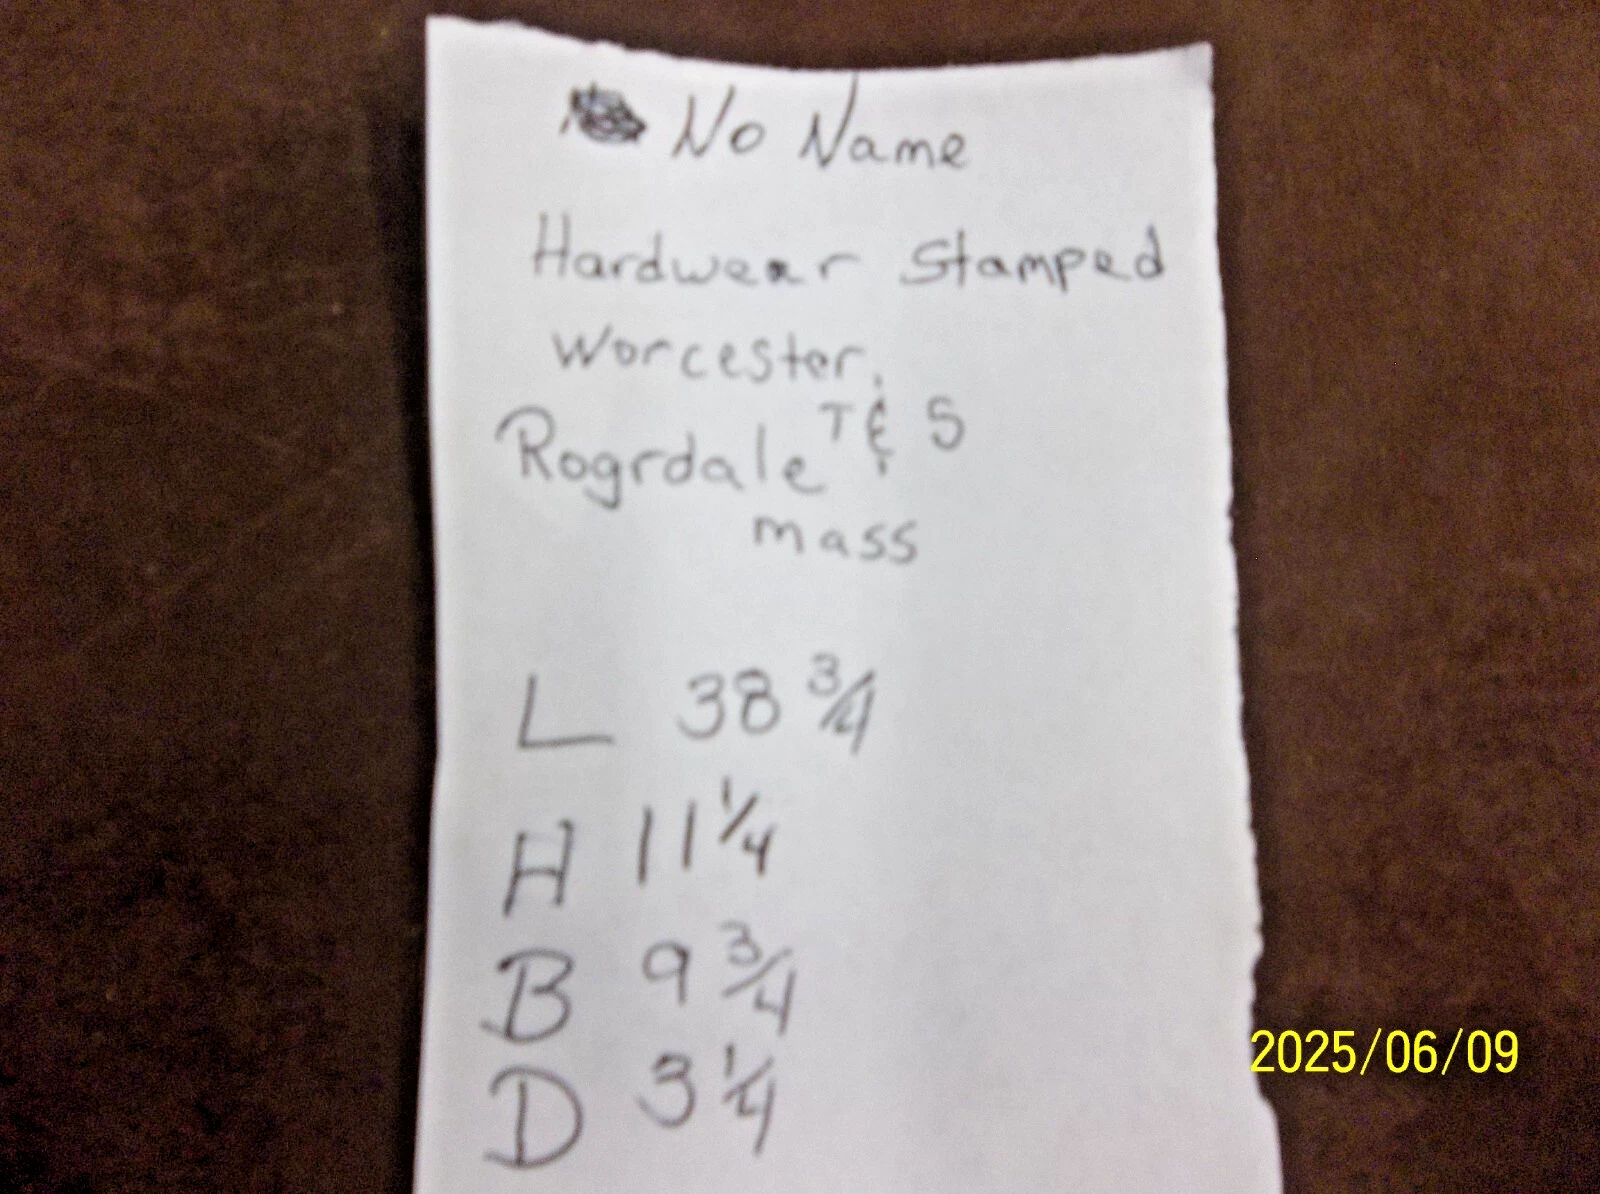 No Name
Hardwear Stamped
Worcester,
Rogrdale T & S
mass
L 38 3/4
H 11 1/4
B 9 3/4
D 3 1/4
2025/06/09